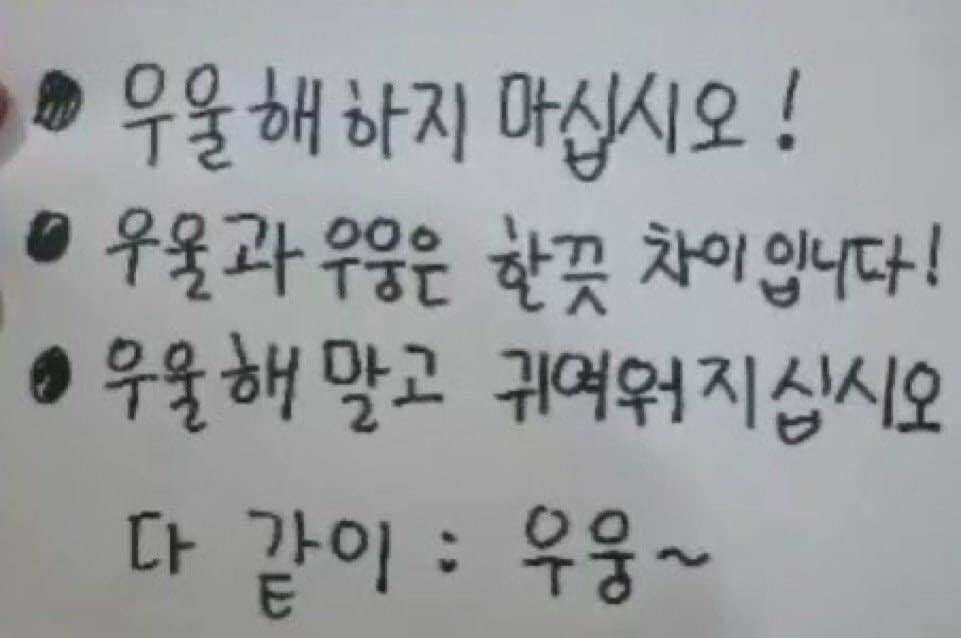 ● 우울해하지 마십시오!
● 우울과 우웅은 한끗 차이입니다!
● 우울해 말고 귀여워지십시오
다 같이 : 우웅~